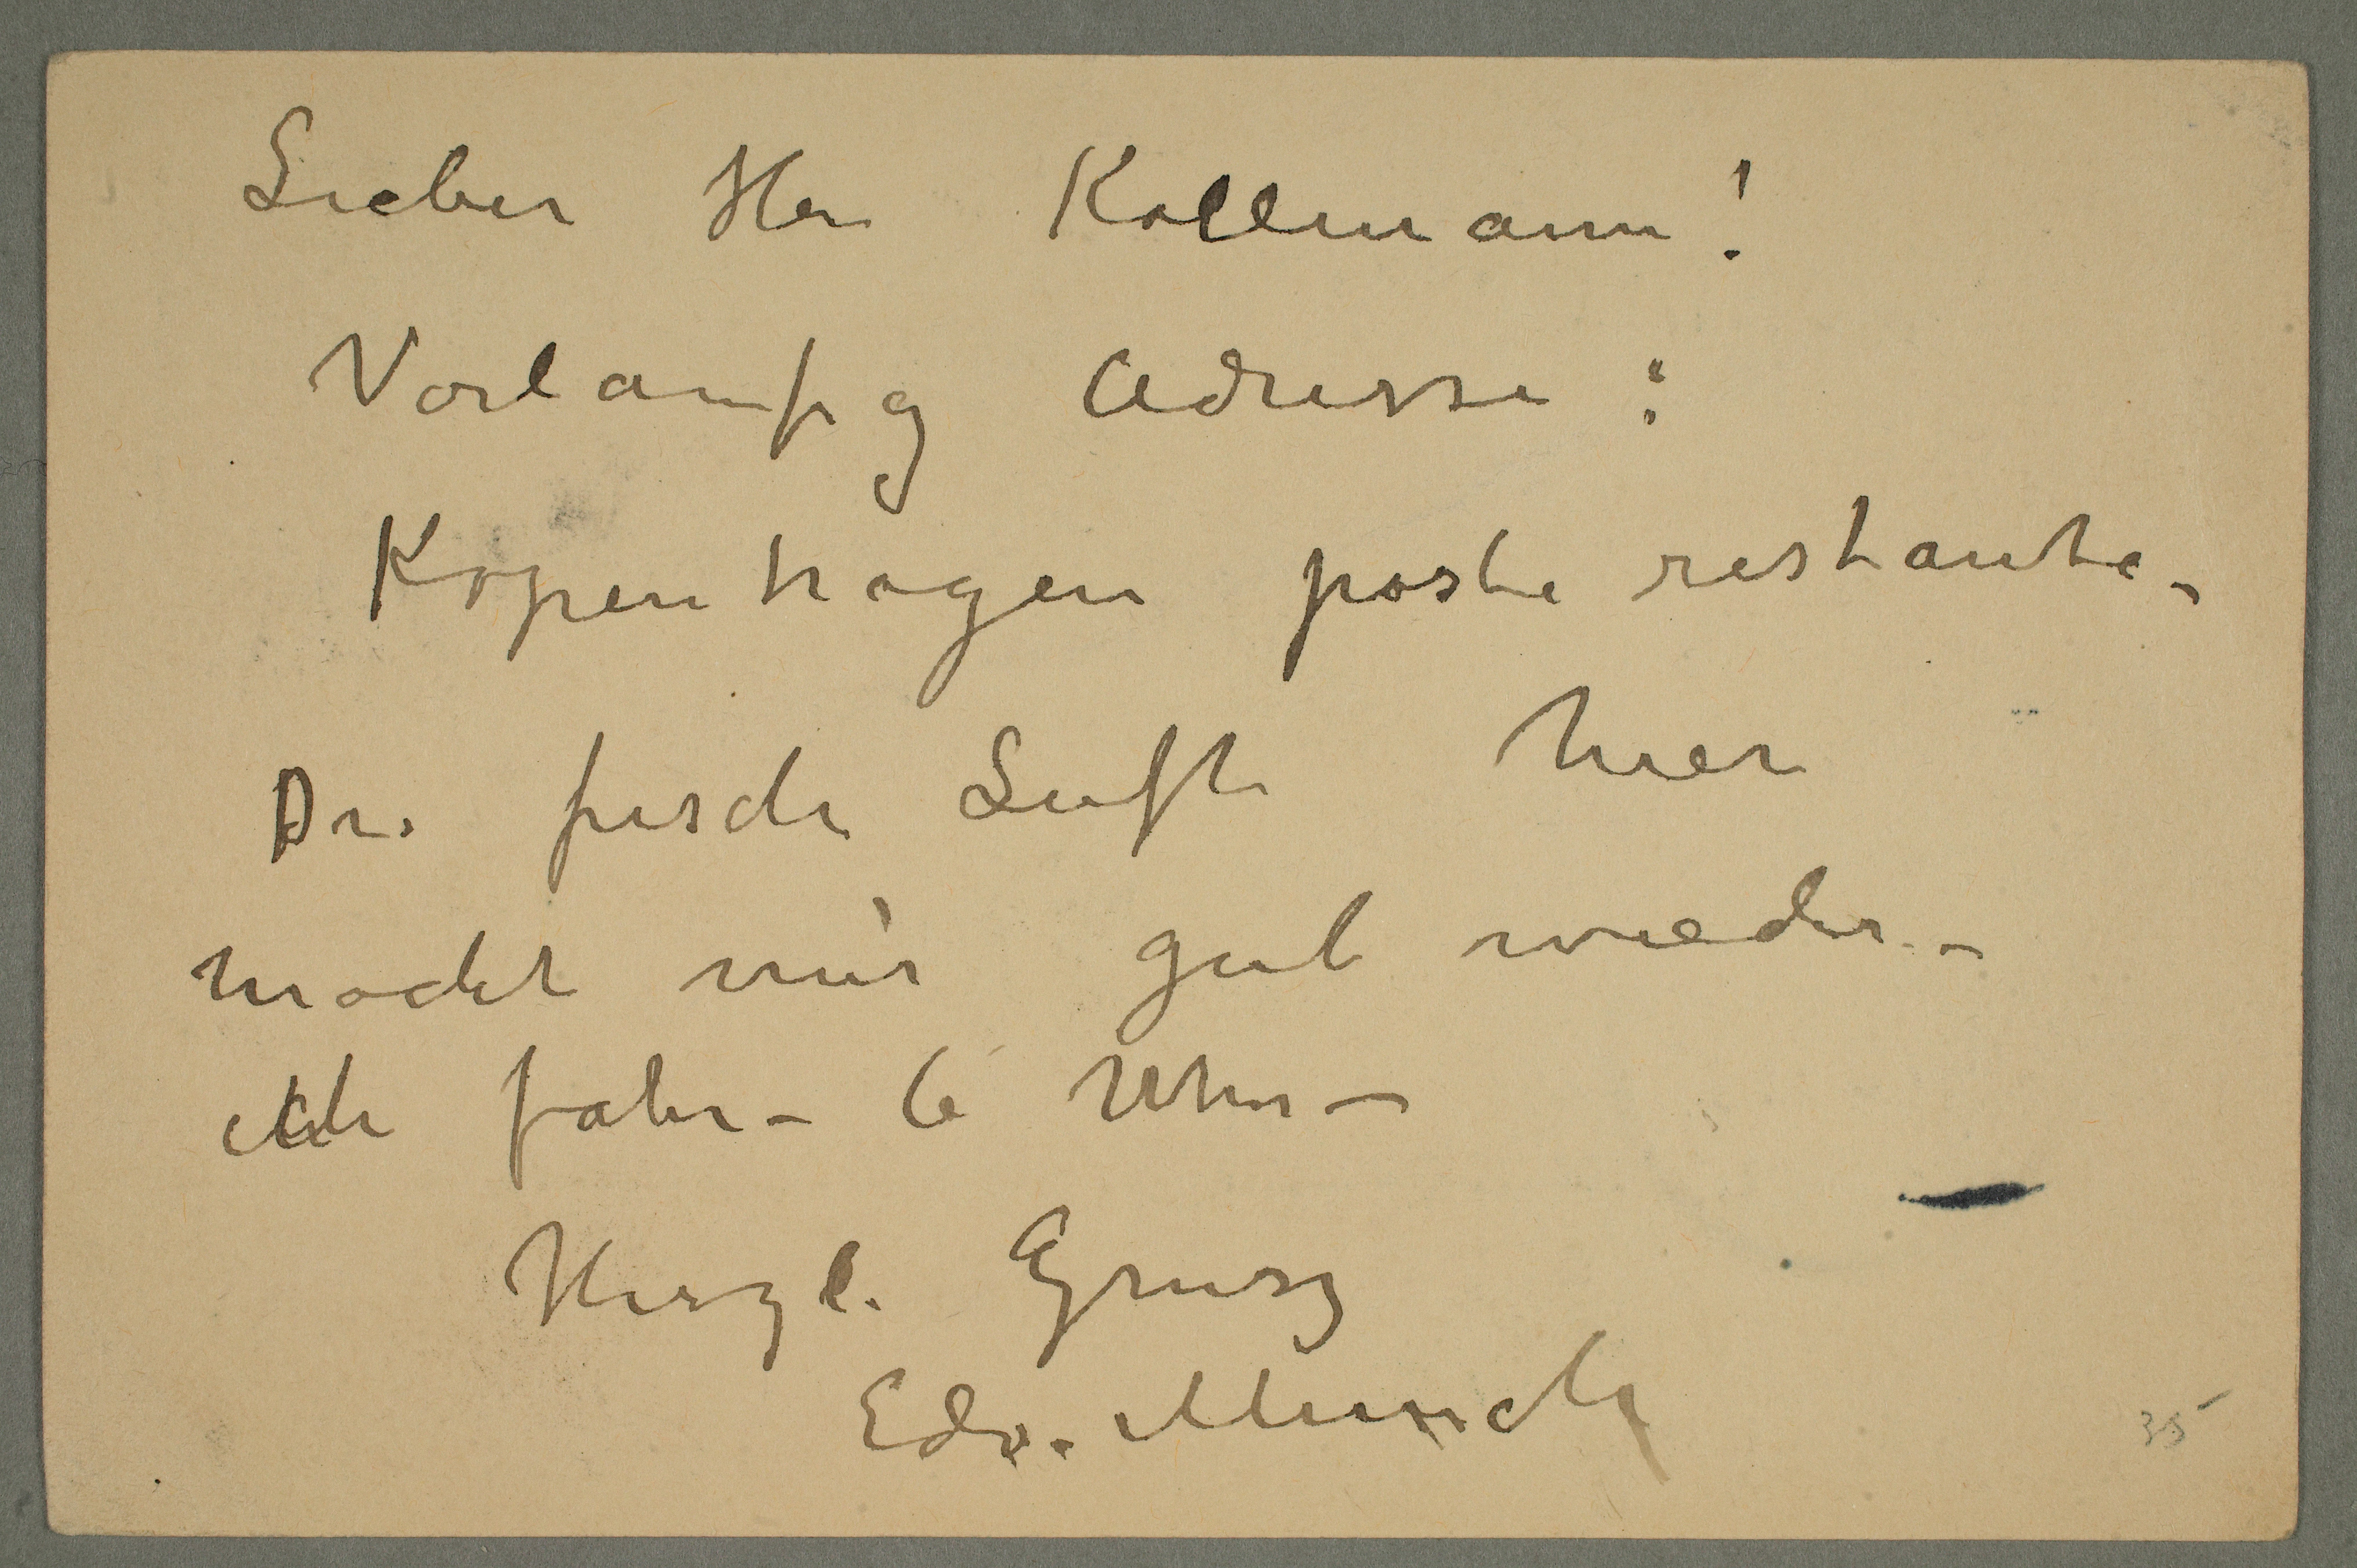 Lieber Herr Kollmann!
Vorlaufig Adresse:
Kopenhagen poste restante.
Die frische Luft hier
macht mir gut wieder –
ich fahr – 6 Uhr –
Herzl. Grusz
Edv. Munch
35